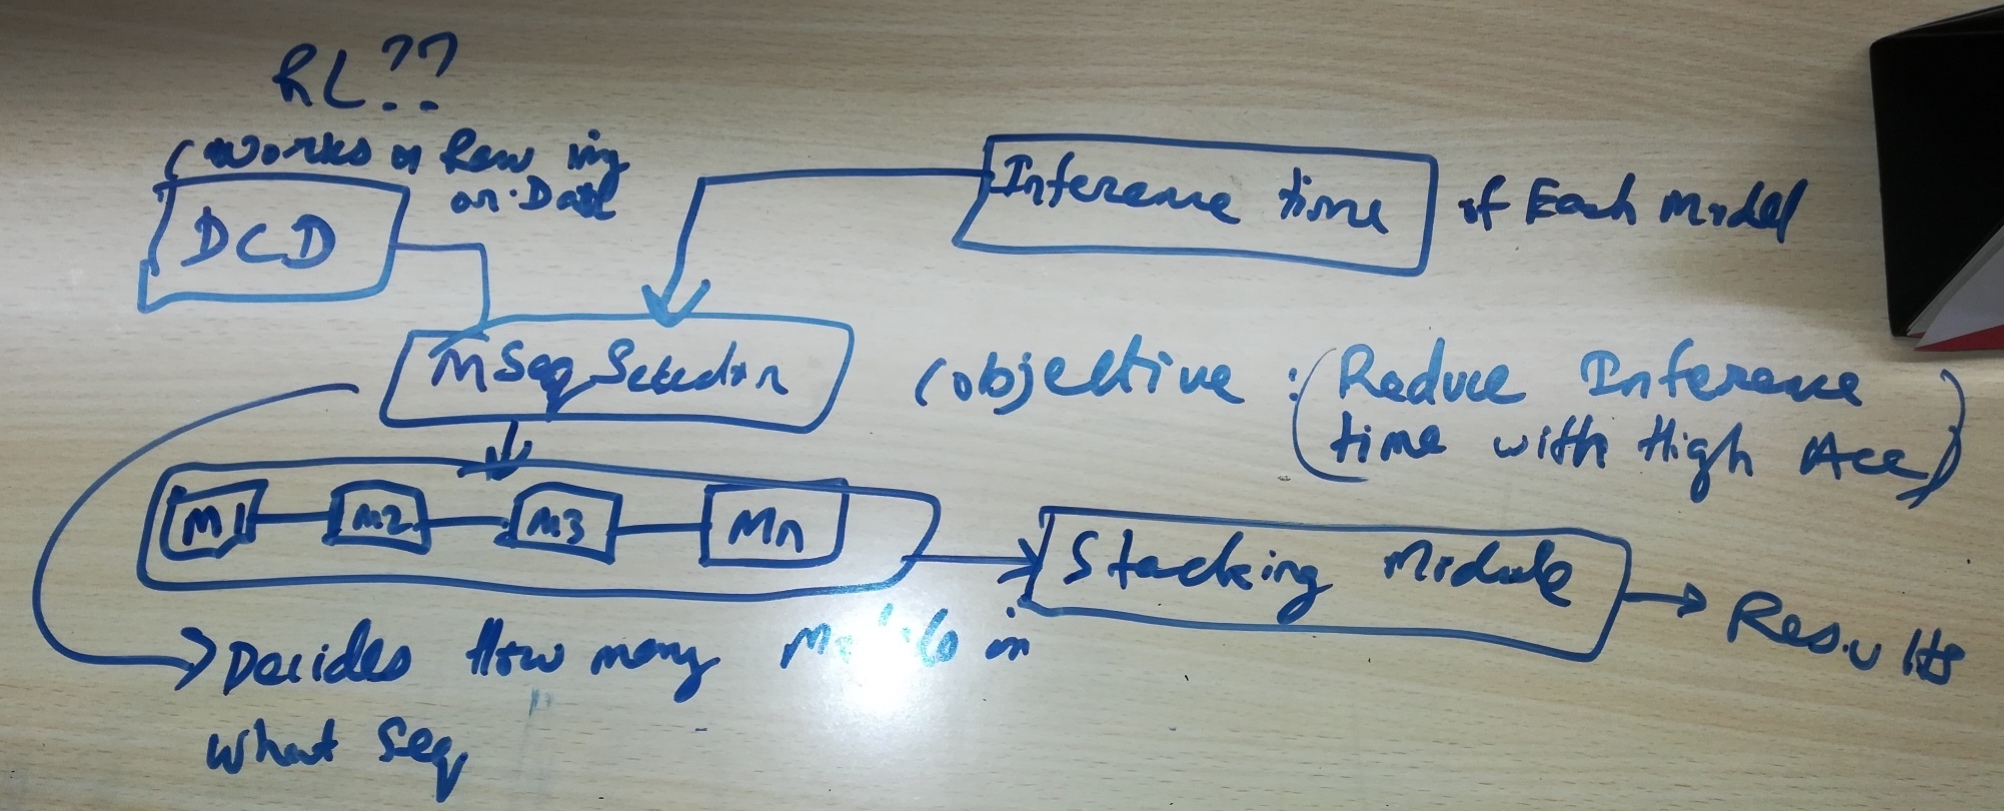 RL??
(Works on Raw img
or Data
DCD
Inference time
of Each Model
MSeq Selector
(objective : (Reduce Inference
time with High Acc)
M1
M2
M3
Mn
Stacking Module
Results
Decides How many Models in
what Seq